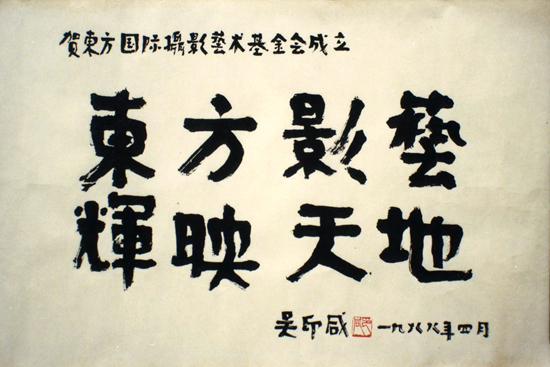 賀東方国际攝影藝术基金会成立
東方影藝
輝映天地
吴印咸 一九八八年四月